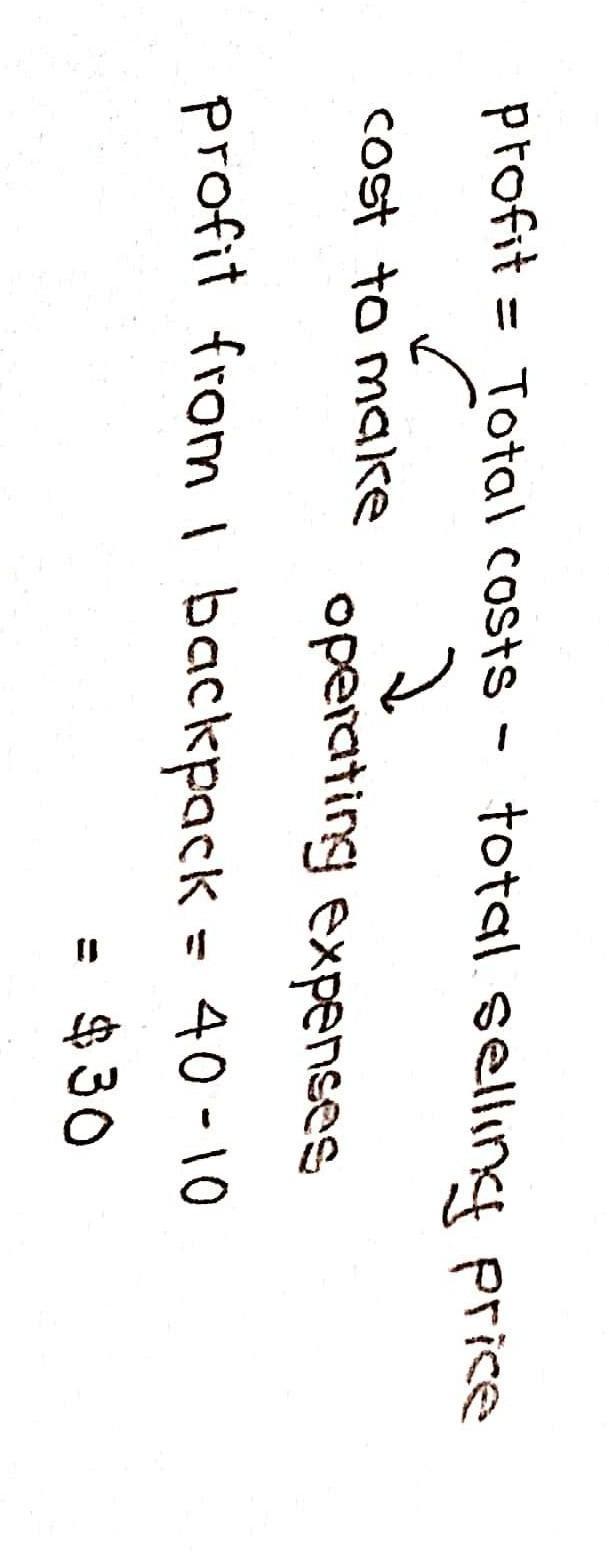 Profit = Total costs - total selling price
cost to make
operating expenses
Profit from 1 backpack = 40-10
= $30